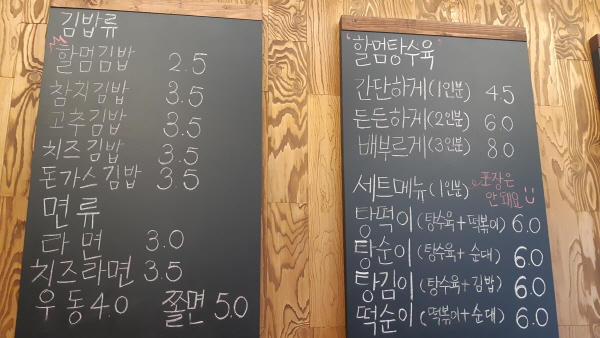 김밥류
할멈김밥 2.5
참치김밥 3.5
고추김밥 3.5
치즈김밥 3.5
돈가스김밥 3.5
면류
라면 3.0
치즈라면 3.5
우동 4.0 쫄면 5.0
'할멈탕수육'
간단하게(1인분) 4.5
든든하게(2인분) 6.0
배부르게(3인분) 8.0
세트메뉴(1인분) 포장은
안돼요
탕떡이(탕수육+떡볶이) 6.0
탕순이(탕수육+순대) 6.0
탕김이(탕수육+김밥) 6.0
떡순이(떡볶이+순대) 6.0